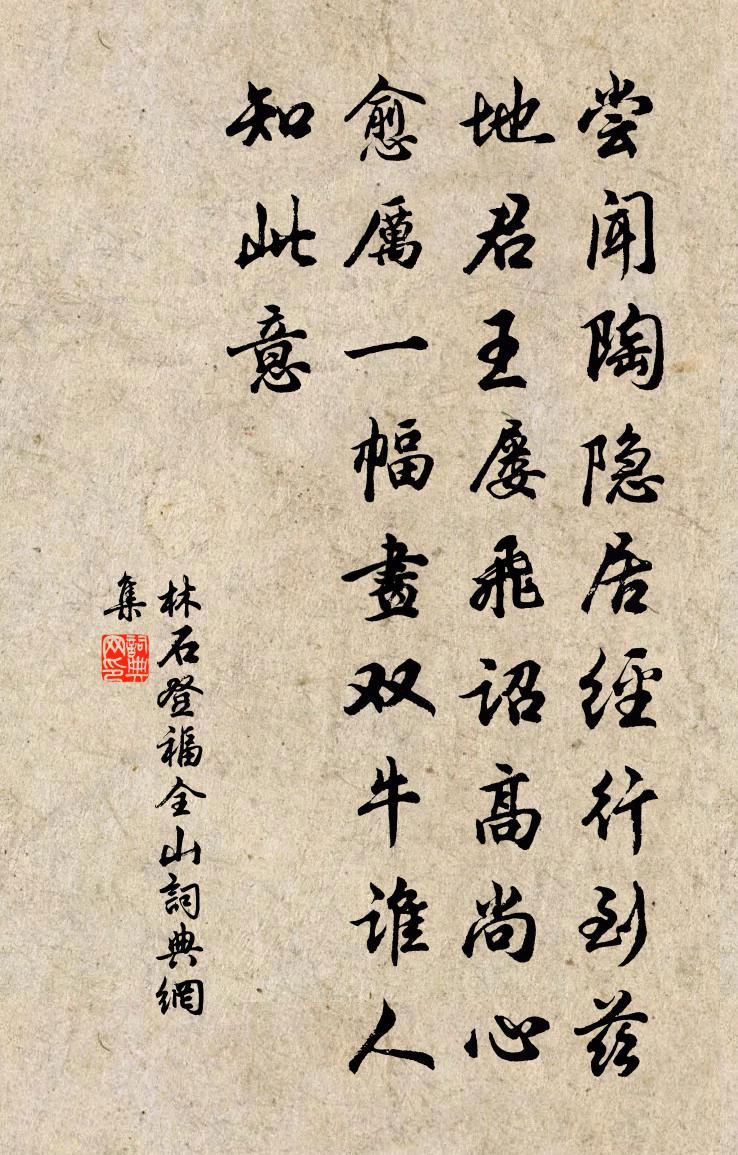 尝闻陶隐居经行到兹
地君王屡飛诏高尚心
愈厲一幅畫双牛谁人
知此意
林石登福全山詞典網
集
詞典
网印